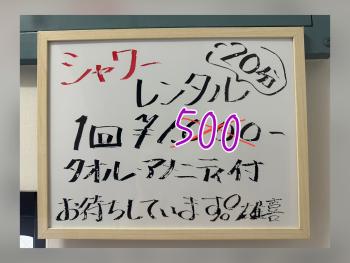 シャワー
20分
レンタル
1回 ¥500-
タオル アメニティ付
お待ちしています!!